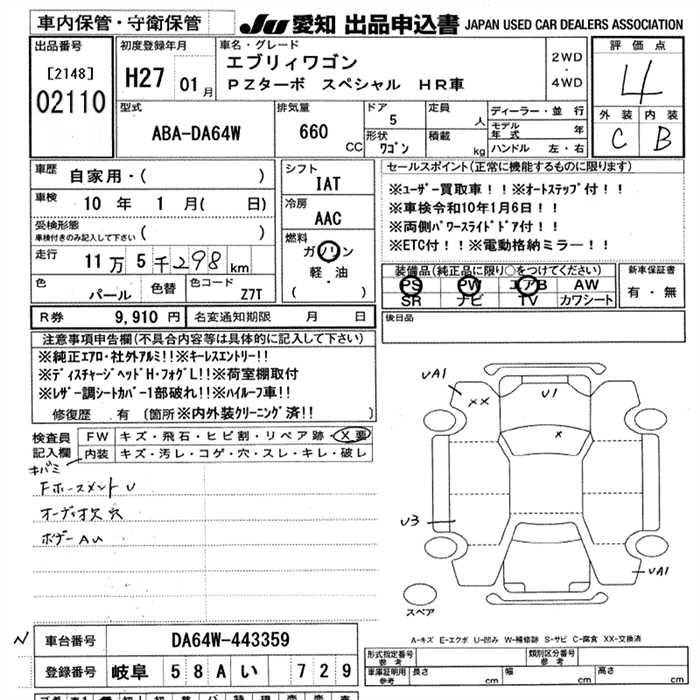 車内保管・守衛保管
JU 愛知 出品申込書 JAPAN USED CAR DEALERS ASSOCIATION
出品番号
[2148]
02110
初度登録年月
H27 01月
車名・グレード
エブリィワゴン
PZターボ スペシャル HR車
2WD
・
4WD
評価点
4
外装 内装
C B
型式
ABA-DA64W
排気量
660 CC
ドア
5
形状
ワゴン
定員
人
積載
kg
ディーラー・並行
モデル年式 年
ハンドル 左・右
車歴
自家用・( )
車検
10年 1月( 日)
受検形態
車検付きのみ記入して下さい ( )
走行
11万5千298km
色
パール
色替
色コード
Z7T
シフト
IAT
冷房
AAC
燃料
ガソリン
軽・油
( )
セールスポイント(正常に機能するものに限ります)
※ユーザー買取車!!※オートステップ付!!
※車検令和10年1月6日!!
※両側パワースライドドア付!!
※ETC付!!※電動格納ミラー!!
装備品(純正品に限り○をつけてください)
PS PW エアB AW
SR ナビ TV カワシート
新車保証書
有・無
R券 9,910円 名変通知期限 月 日
後日品
注意事項申告欄(不具合内容等は具体的に記入して下さい)
※純正エアロ・社外アルミ!!※キーレスエントリー!!
※ディスチャージヘッドH・フォグL!!※荷室棚取付
※レザー調シートカバー1部破れ!!※ハイルーフ車!!
修復歴 有 (箇所 ※内外装クリーニング済!!)
検査員
記入欄
FW キズ・飛石・ヒビ割・リペア跡・X要
内装 キズ・汚レ・コゲ・穴・スレ・キレ・破レ
キバミ
Fホースメント U
オーディオ欠 穴
ボデーAU
UA1
XX
U1
x
U3
UA1
スペア
A-キズ E-エクボ U-凹み W-補修跡 S-サビ C-腐食 XX-交換済
N
車台番号 DA64W-443359
登録番号 岐阜 58Aい 729
形式指定番号
参考
類別区分番号
参考
車庫証明用
参考
長さ cm 幅 cm 高さ cm